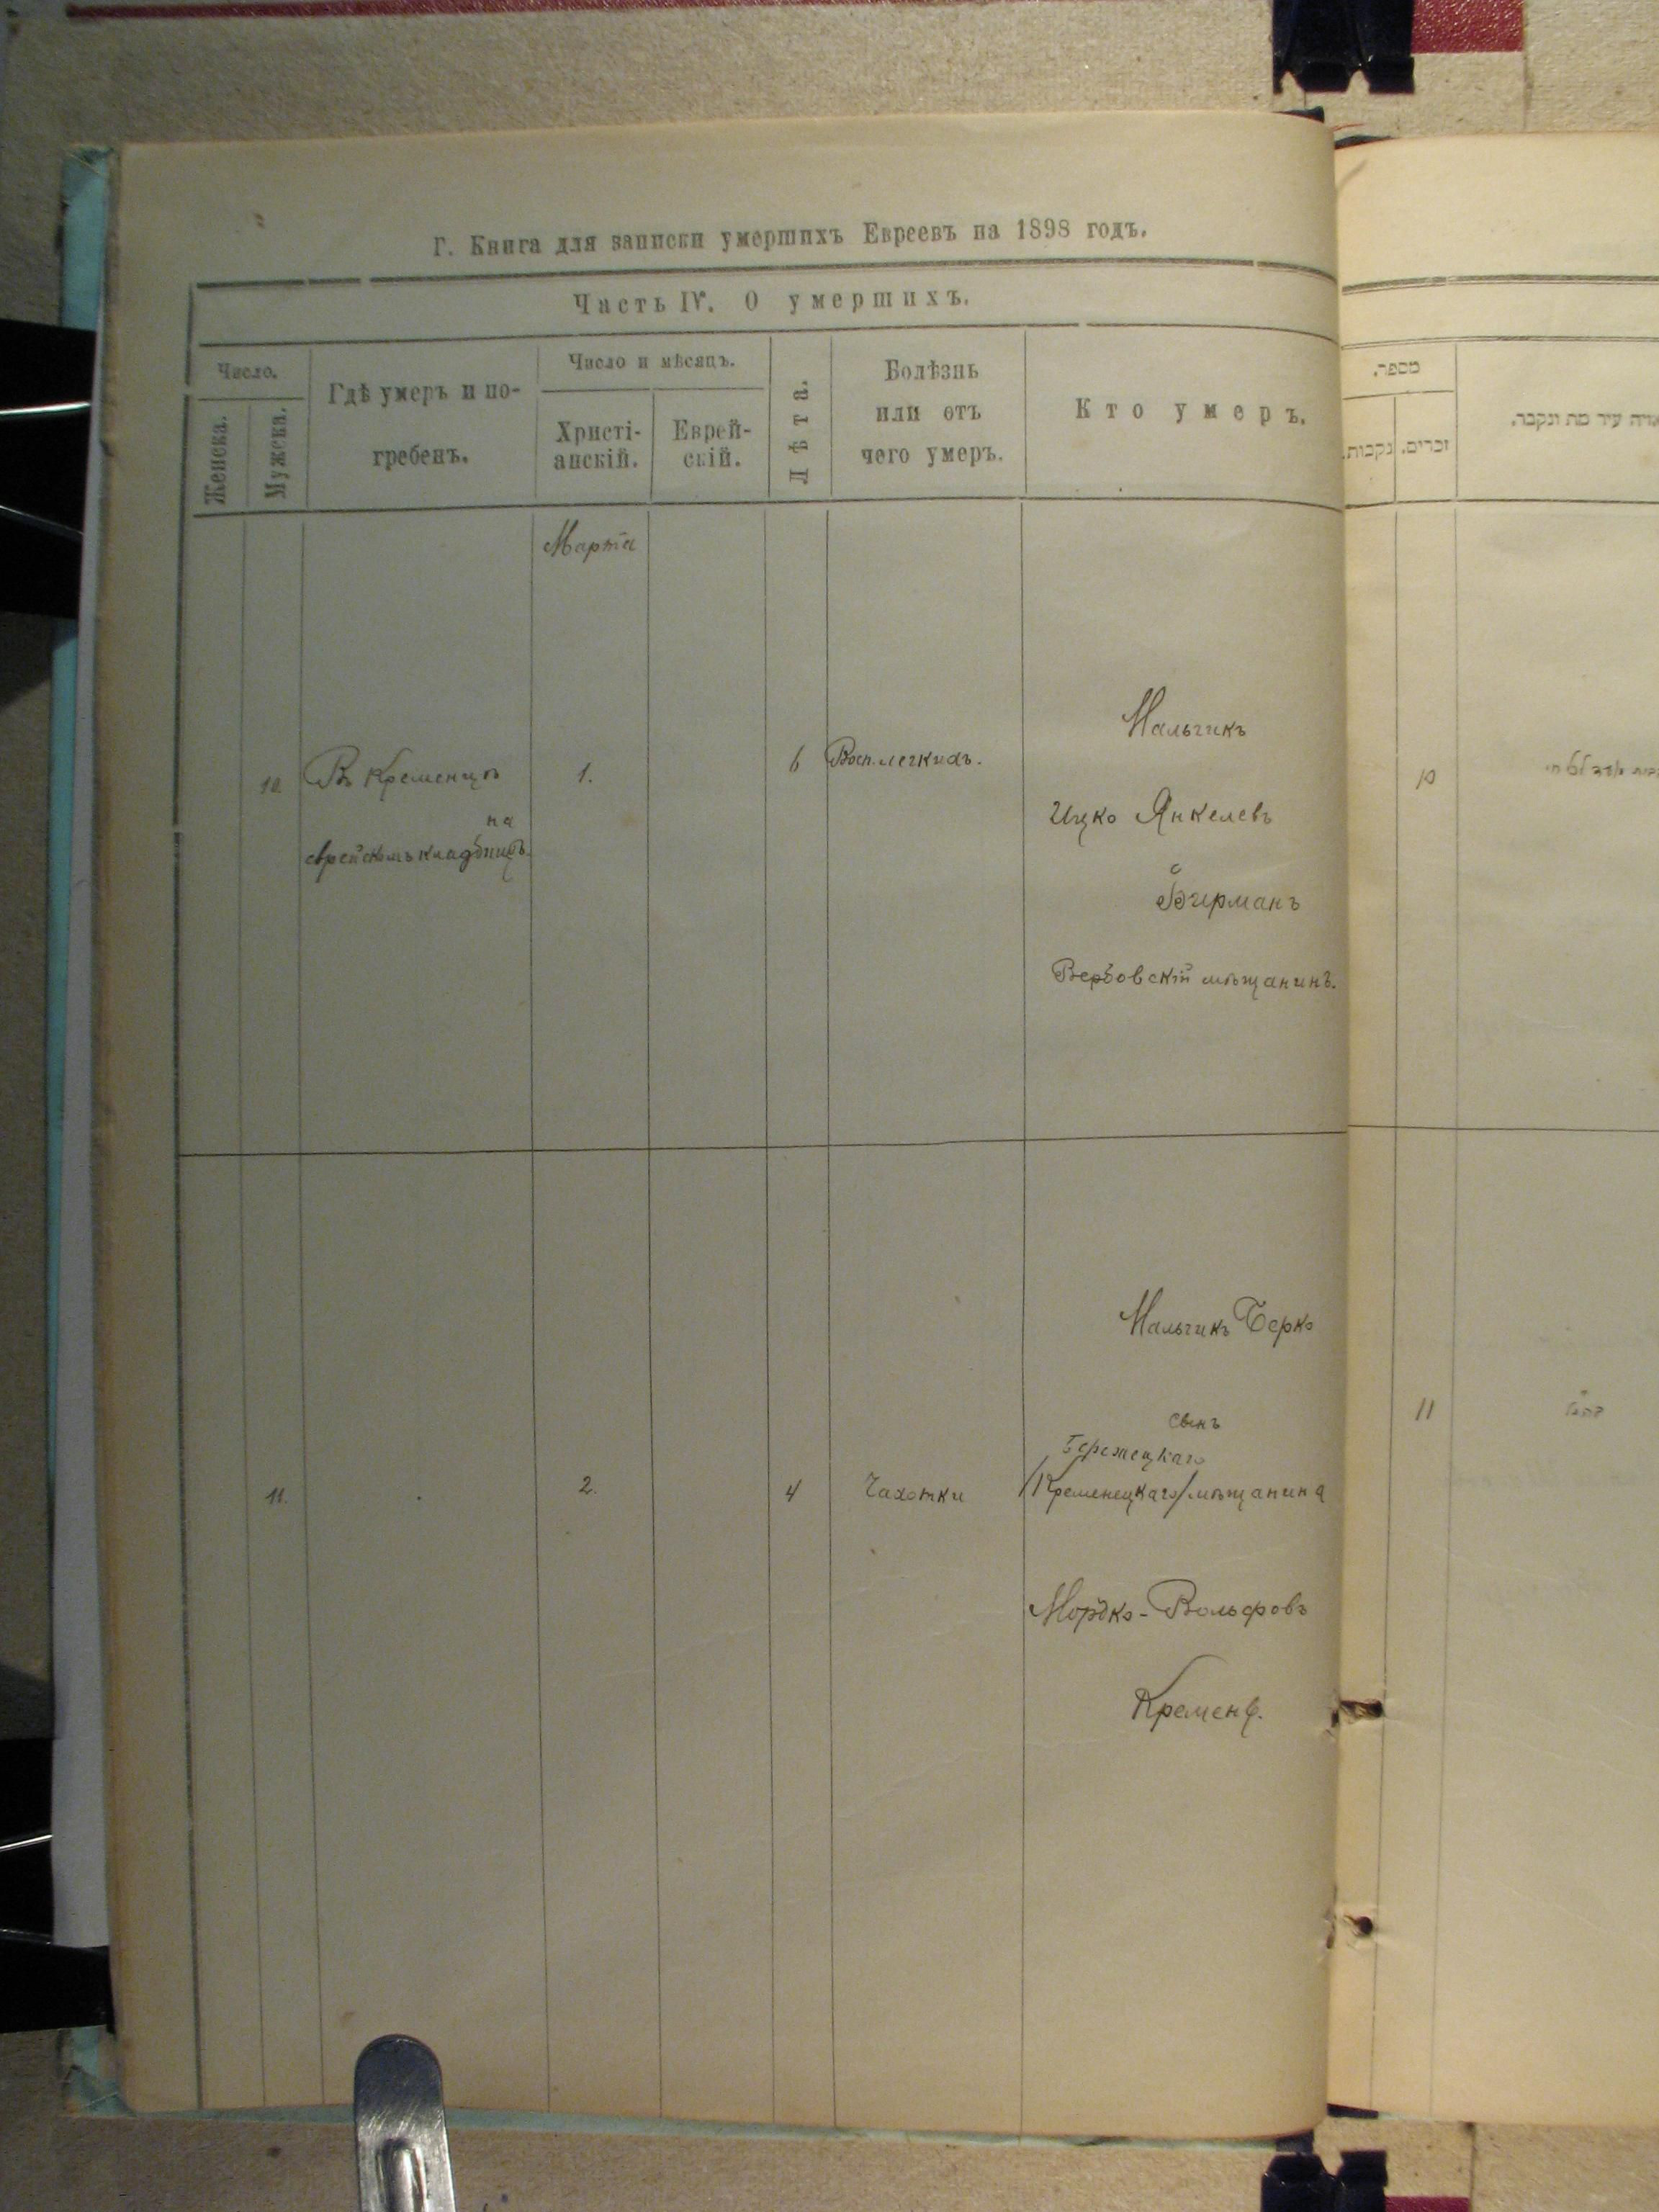 Г. Книга для записки умершихъ Евреевъ на 1898 годъ.
Часть IV. О умершихъ.
Число.
Женска.
Мужеска.
Гдѣ умеръ и по-
гребенъ.
Число и мѣсяцъ.
Христі-
анскій.
Еврей-
скій.
Лѣта.
Болѣзнь
или отъ
чего умеръ.
Кто умеръ.
מספר.
נקבות.
זכרים.
עיר מת ונקבר.
Марта
10
Въ Кременцѣ
на
еврейскомъ кладбищѣ.
1.
6
Восп. легкихъ.
Мальчикъ
Ицко Янкелевъ
Бирманъ
Вербовскій мѣщанинъ.
10
11.
2.
4
Чахотки
Мальчикъ Берко
сынъ
Бережецкаго
/Кременецкаго/ мѣщанина
Мордко-Вольфовъ
Кременъ.
11